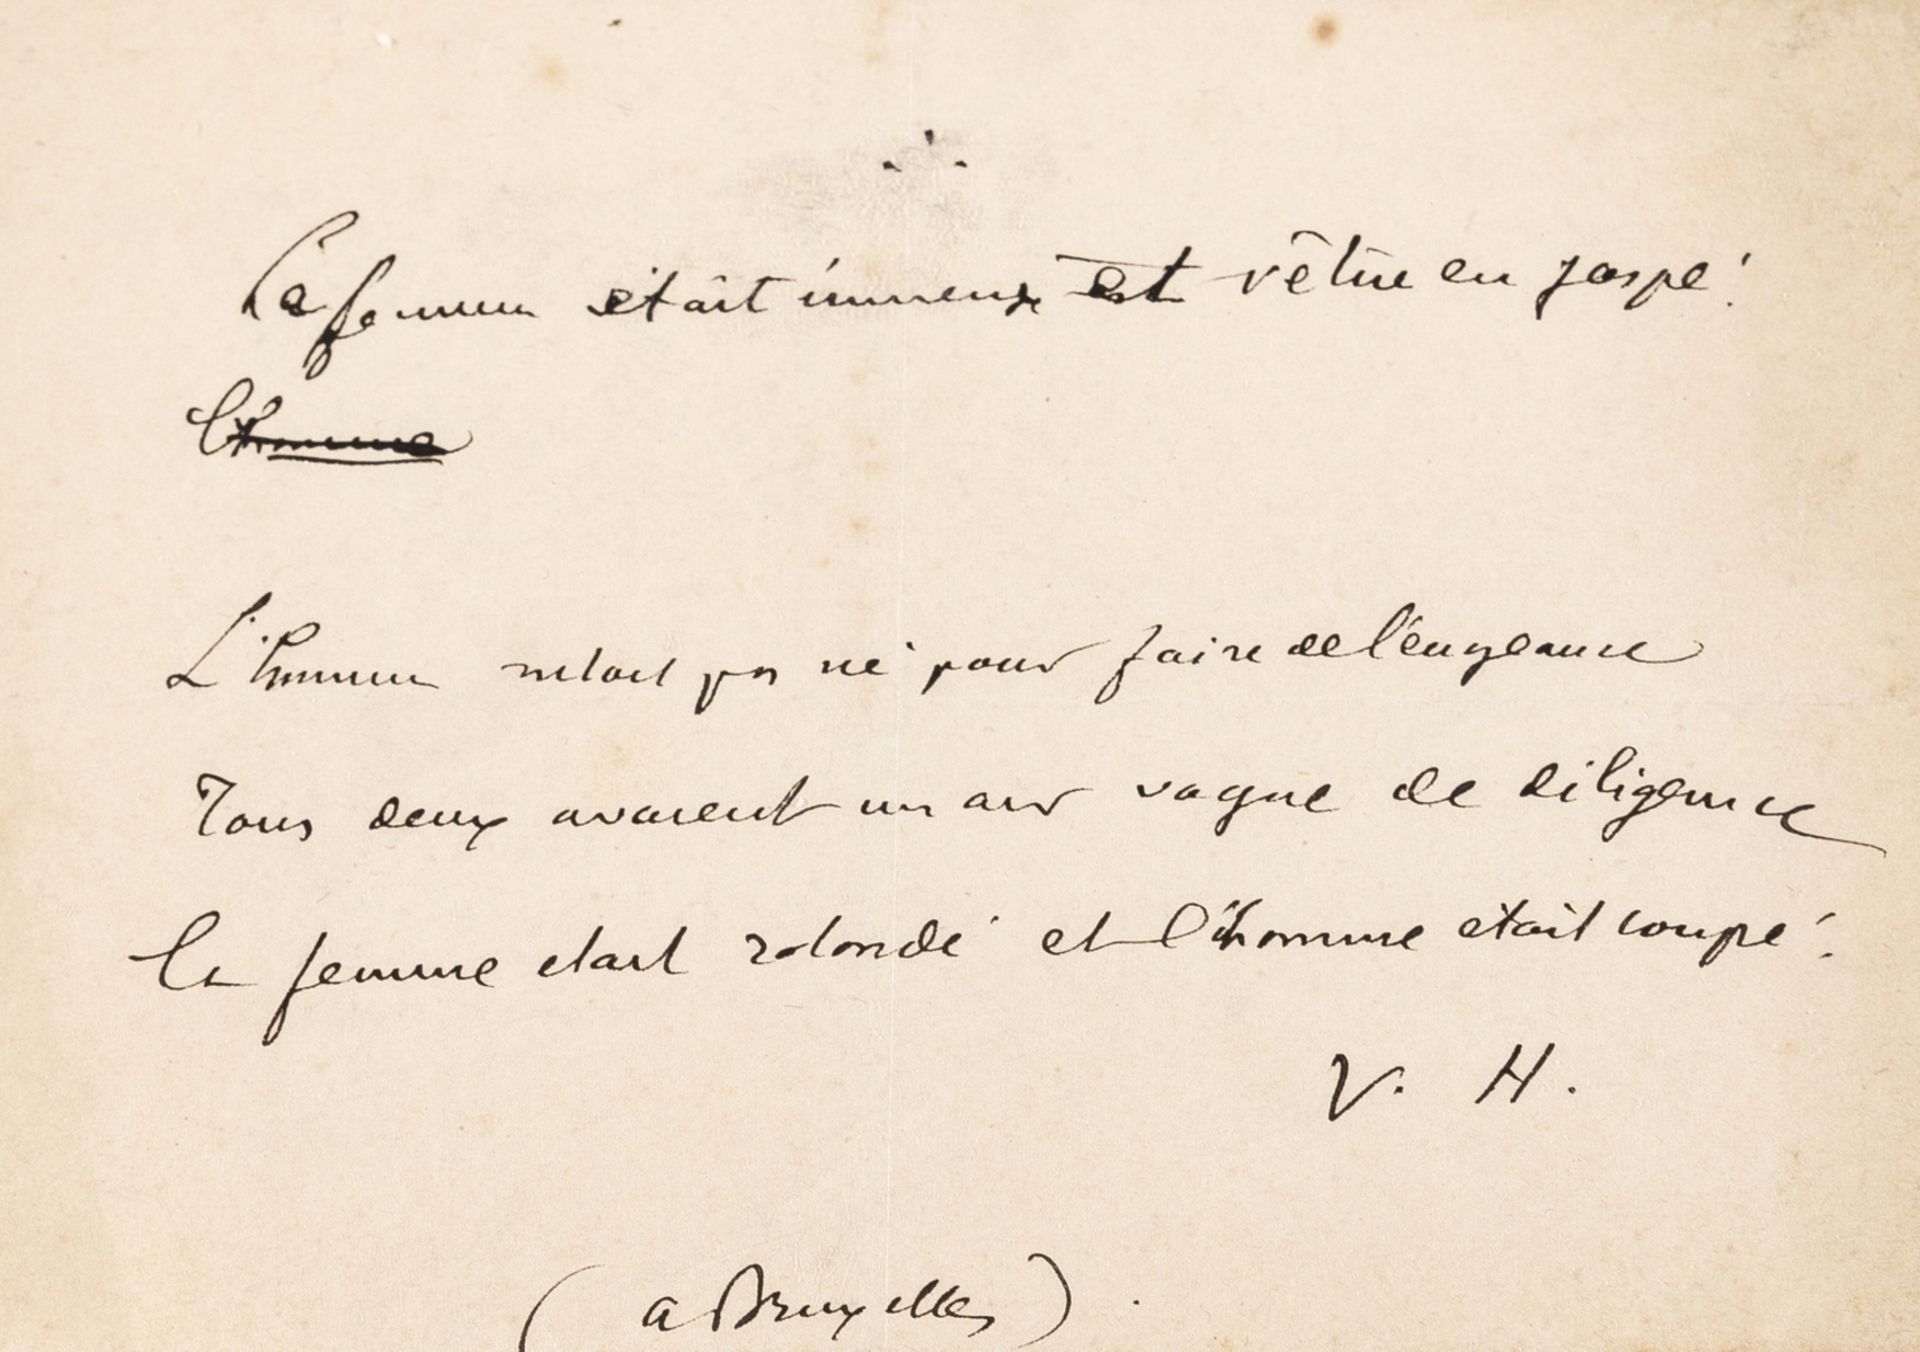 La femme était immense et vêtue en jaspé.
L'homme
L'homme n'etait pas né pour faire de l'engeance
Tous deux avaient un air vague de diligence
La femme etait rotonde et l'homme était coupé.
V. H.
(a Bruxelles).